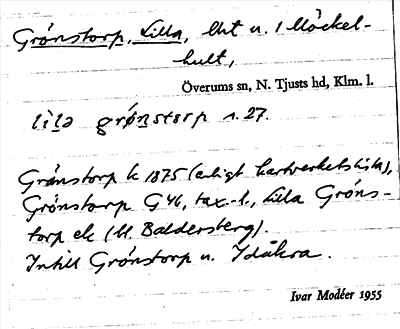 Grönstorp, Lilla, lht u. 1 Möckel-
hult,
Överums sn, N. Tjusts hd, Klm. l.
lìlə grǿnstɛrp 1.27.
Grönstorp k 1875 (enligt kartverketslista),
Grönstorp G46, tax.-l., Lilla Gröns-
torp ek (U. Baldersberg).
Intill Grönstorp u. Idåkra.
Ivar Modéer 1955